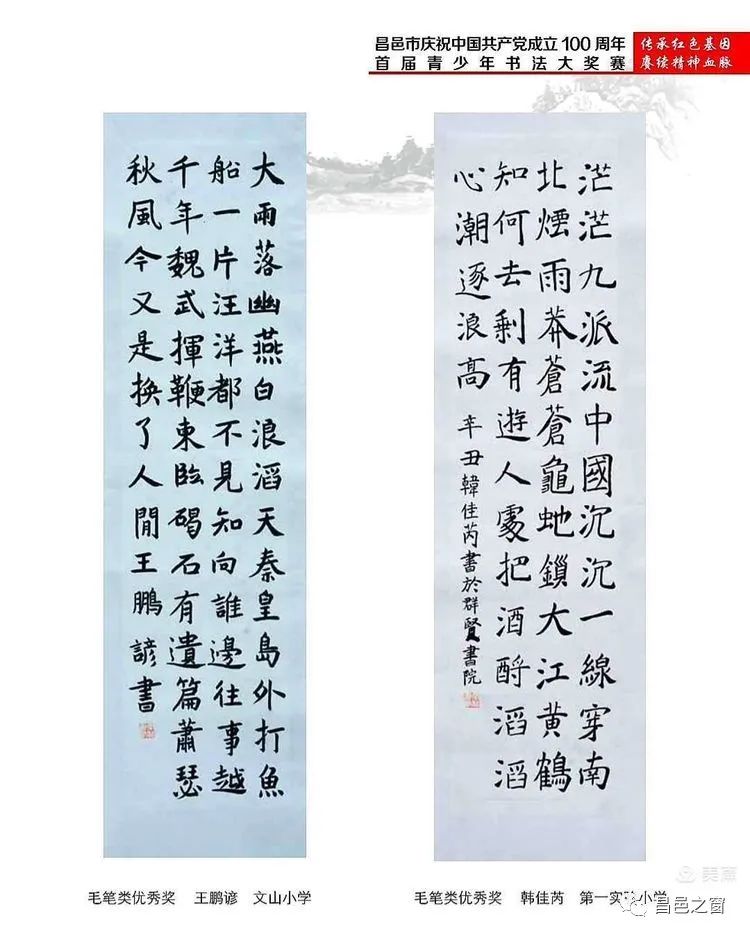 昌邑市庆祝中国共产党成立100周年
首届青少年书法大奖赛
传承红色基因
赓续精神血脉
大雨落幽燕白浪滔天秦皇島外打魚
船一片汪洋都不見知向誰邊往事越
千年魏武揮鞭東臨碣石有遺篇蕭瑟
秋風今又是换了人閒王鵬諺書
茫茫九派流中國沉沉一線穿南
北煙雨莽蒼蒼龜虵鎖大江黄鶴
知何去剩有遊人處把酒酹滔滔
心潮逐浪高 辛丑韓佳芮書於群賢書院
毛笔类优秀奖 王鹏谚 文山小学
毛笔类优秀奖 韩佳芮 第一实验小学
美篇
昌邑之窗